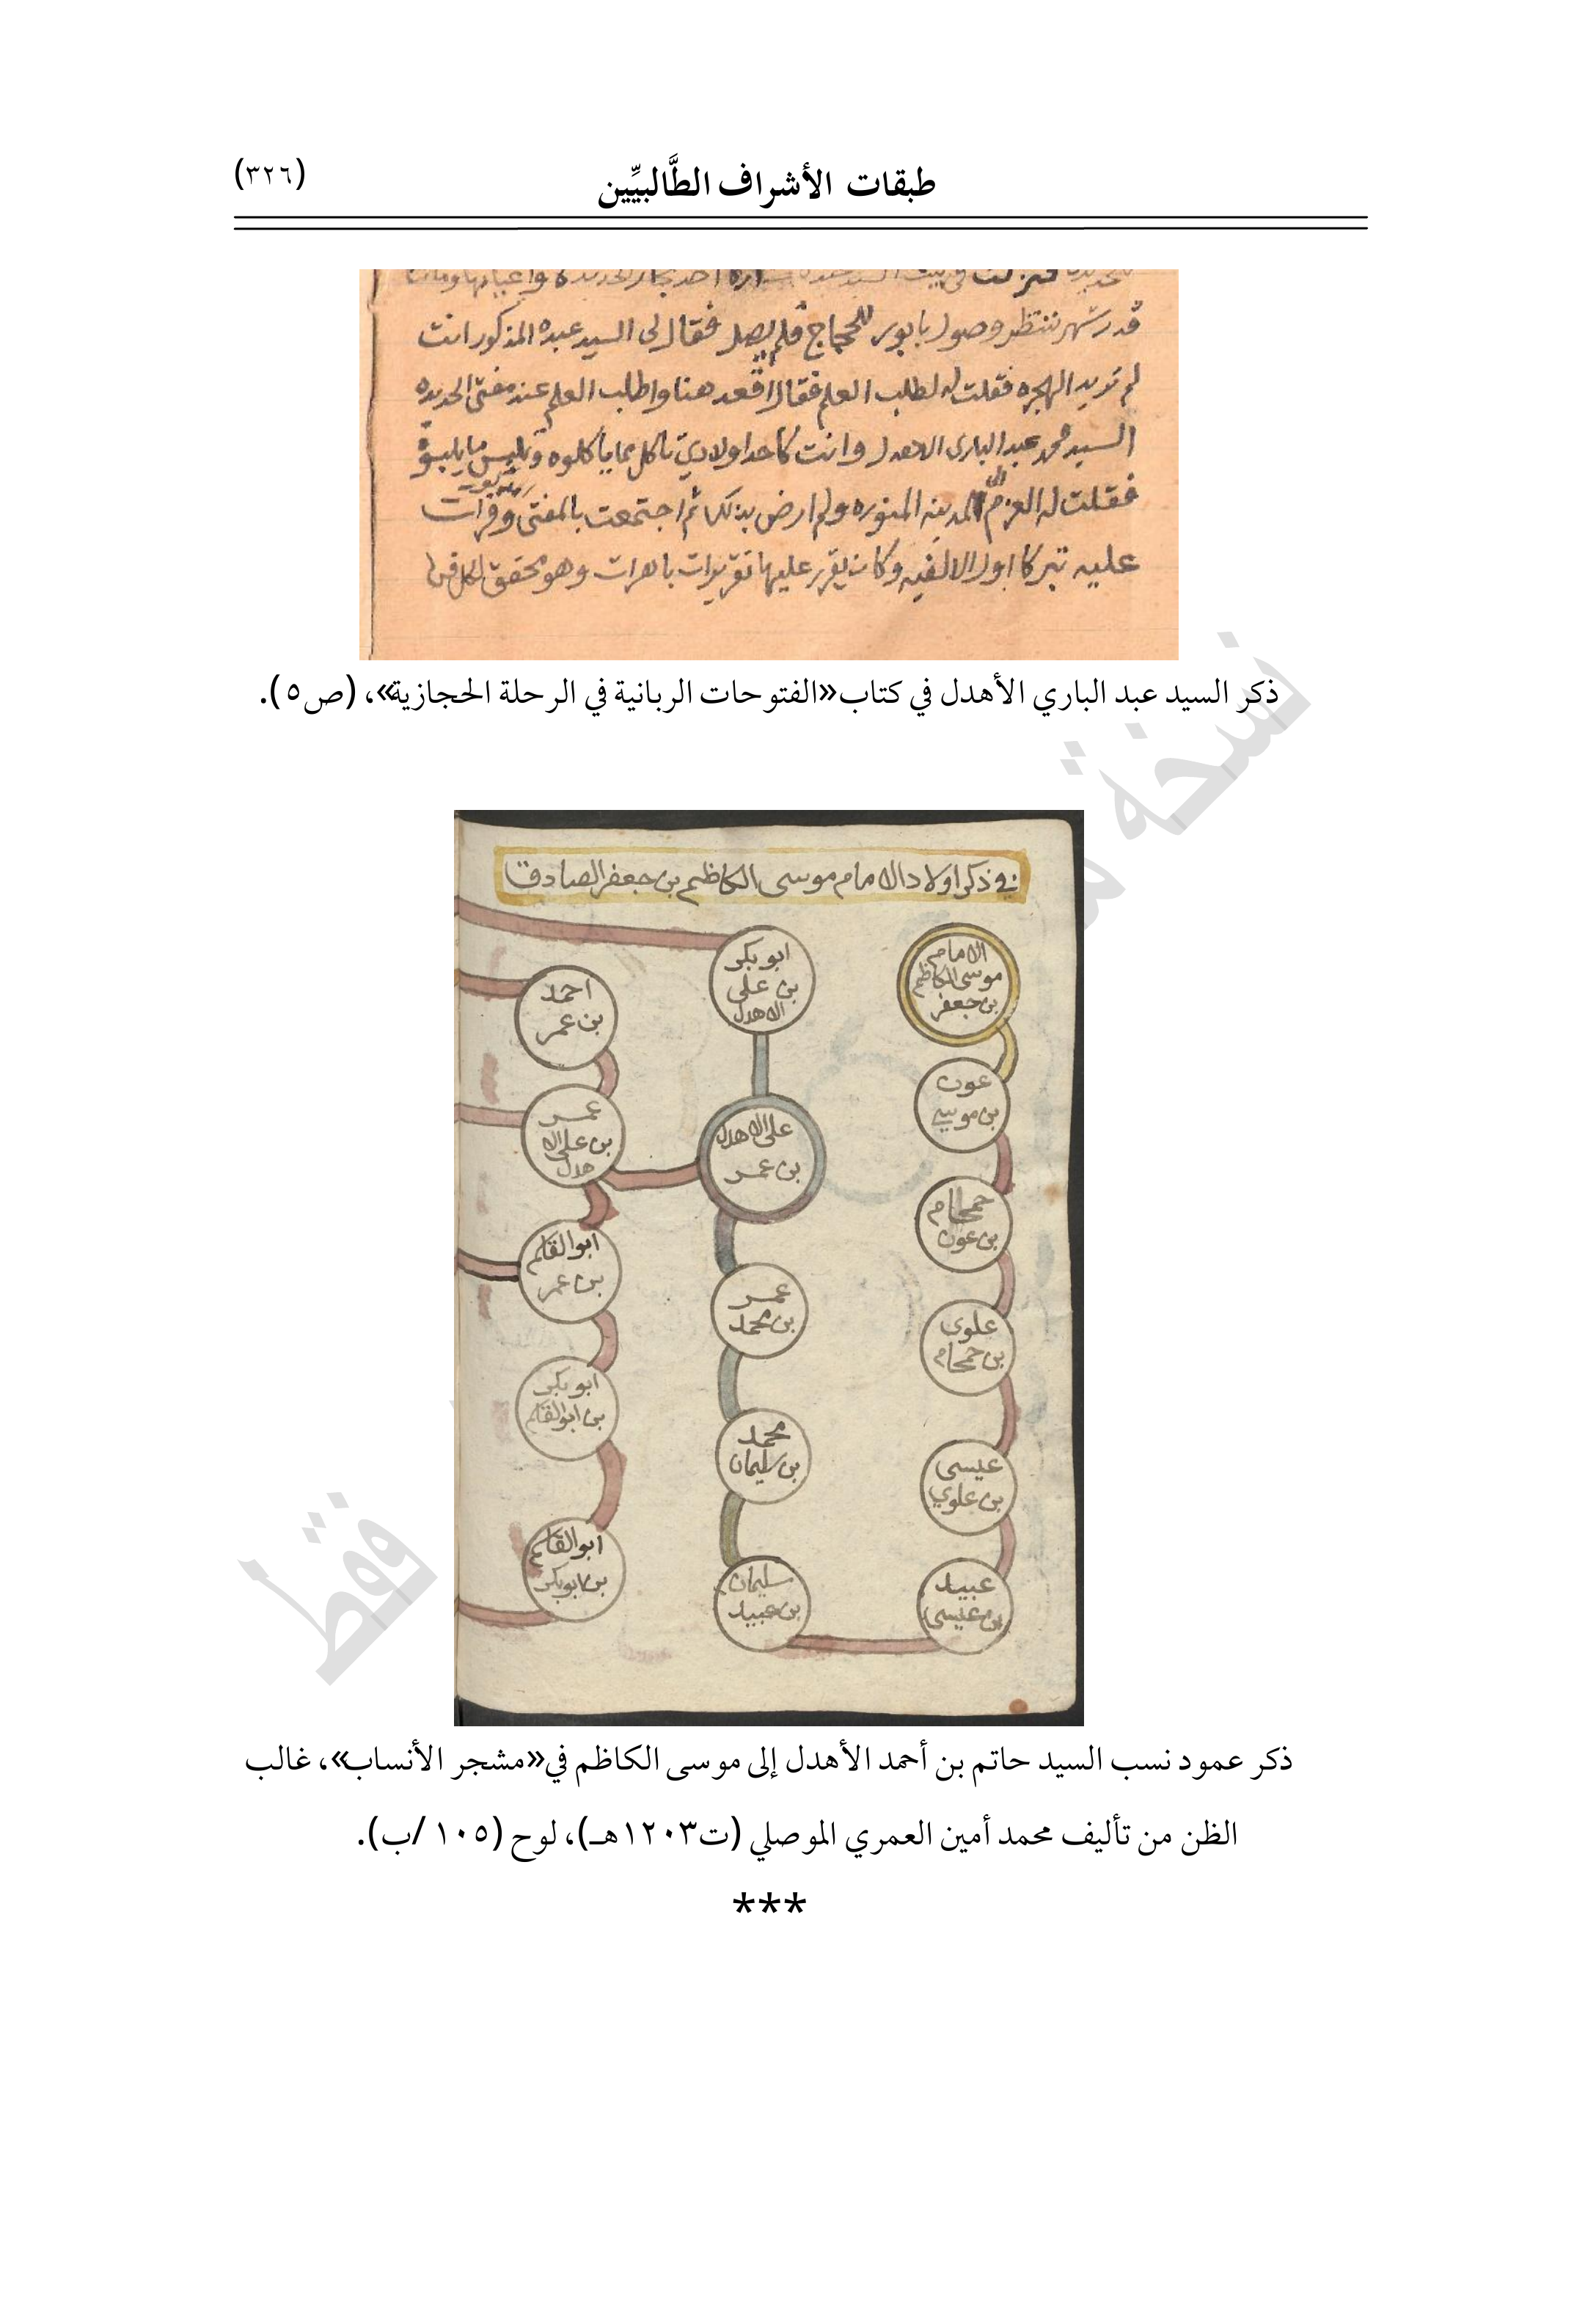 طبقات الأشراف الطَّالبيِّين
(٣٢٦)
قدر شهر ننتظر وصول بابور للحجاج فلم يصل فقال لى السيد عبده المذكور انت
لم تريد الهجره فقلت له لطلب العلم فقال اقعد هنا واطلب العلم عند مفتى الحديده
السيد محمد عبد البارى الاهدل وانت كاحد اولادي تاكل مما ياكلوه وتلبس ما يلبسوه
فقلت له العزم الى المدينه المنوره ولم ارض بذلك ثم اجتمعت بالمفتى وقرات
عليه تبركا اول الالفيه وكان يقرر عليها تقريرات باهرات وهو محقق لكل فن
ذكر السيد عبد الباري الأهدل في كتاب «الفتوحات الربانية في الرحلة الحجازية»، (ص٥).
في ذكر اولاد الامام موسى الكاظم بن جعفر الصادق
الامام
موسى الكاظم
بن جعفر
عون
بن موسى
حمحام
بن عون
علوي
بن حمحام
عيسى
بن علوي
عبيد
بن عيسى
ابو بكر
بن على
الاهدل
على الاهدل
بن عمر
عمر
بن محمد
محمد
بن سليمان
سليمان
بن عبيد
احمد
بن عمر
عمر
بن على الا
هدل
ابو القاسم
بن عمر
ابو بكر
بن ابو القاسم
ابو القاسم
بن ابو بكر
ذكر عمود نسب السيد حاتم بن أحمد الأهدل إلى موسى الكاظم في «مشجر الأنساب»، غالب
الظن من تأليف محمد أمين العمري الموصلي (ت١٢٠٣هـ)، لوح (١٠٥ /ب).
***
نسخة
فقط